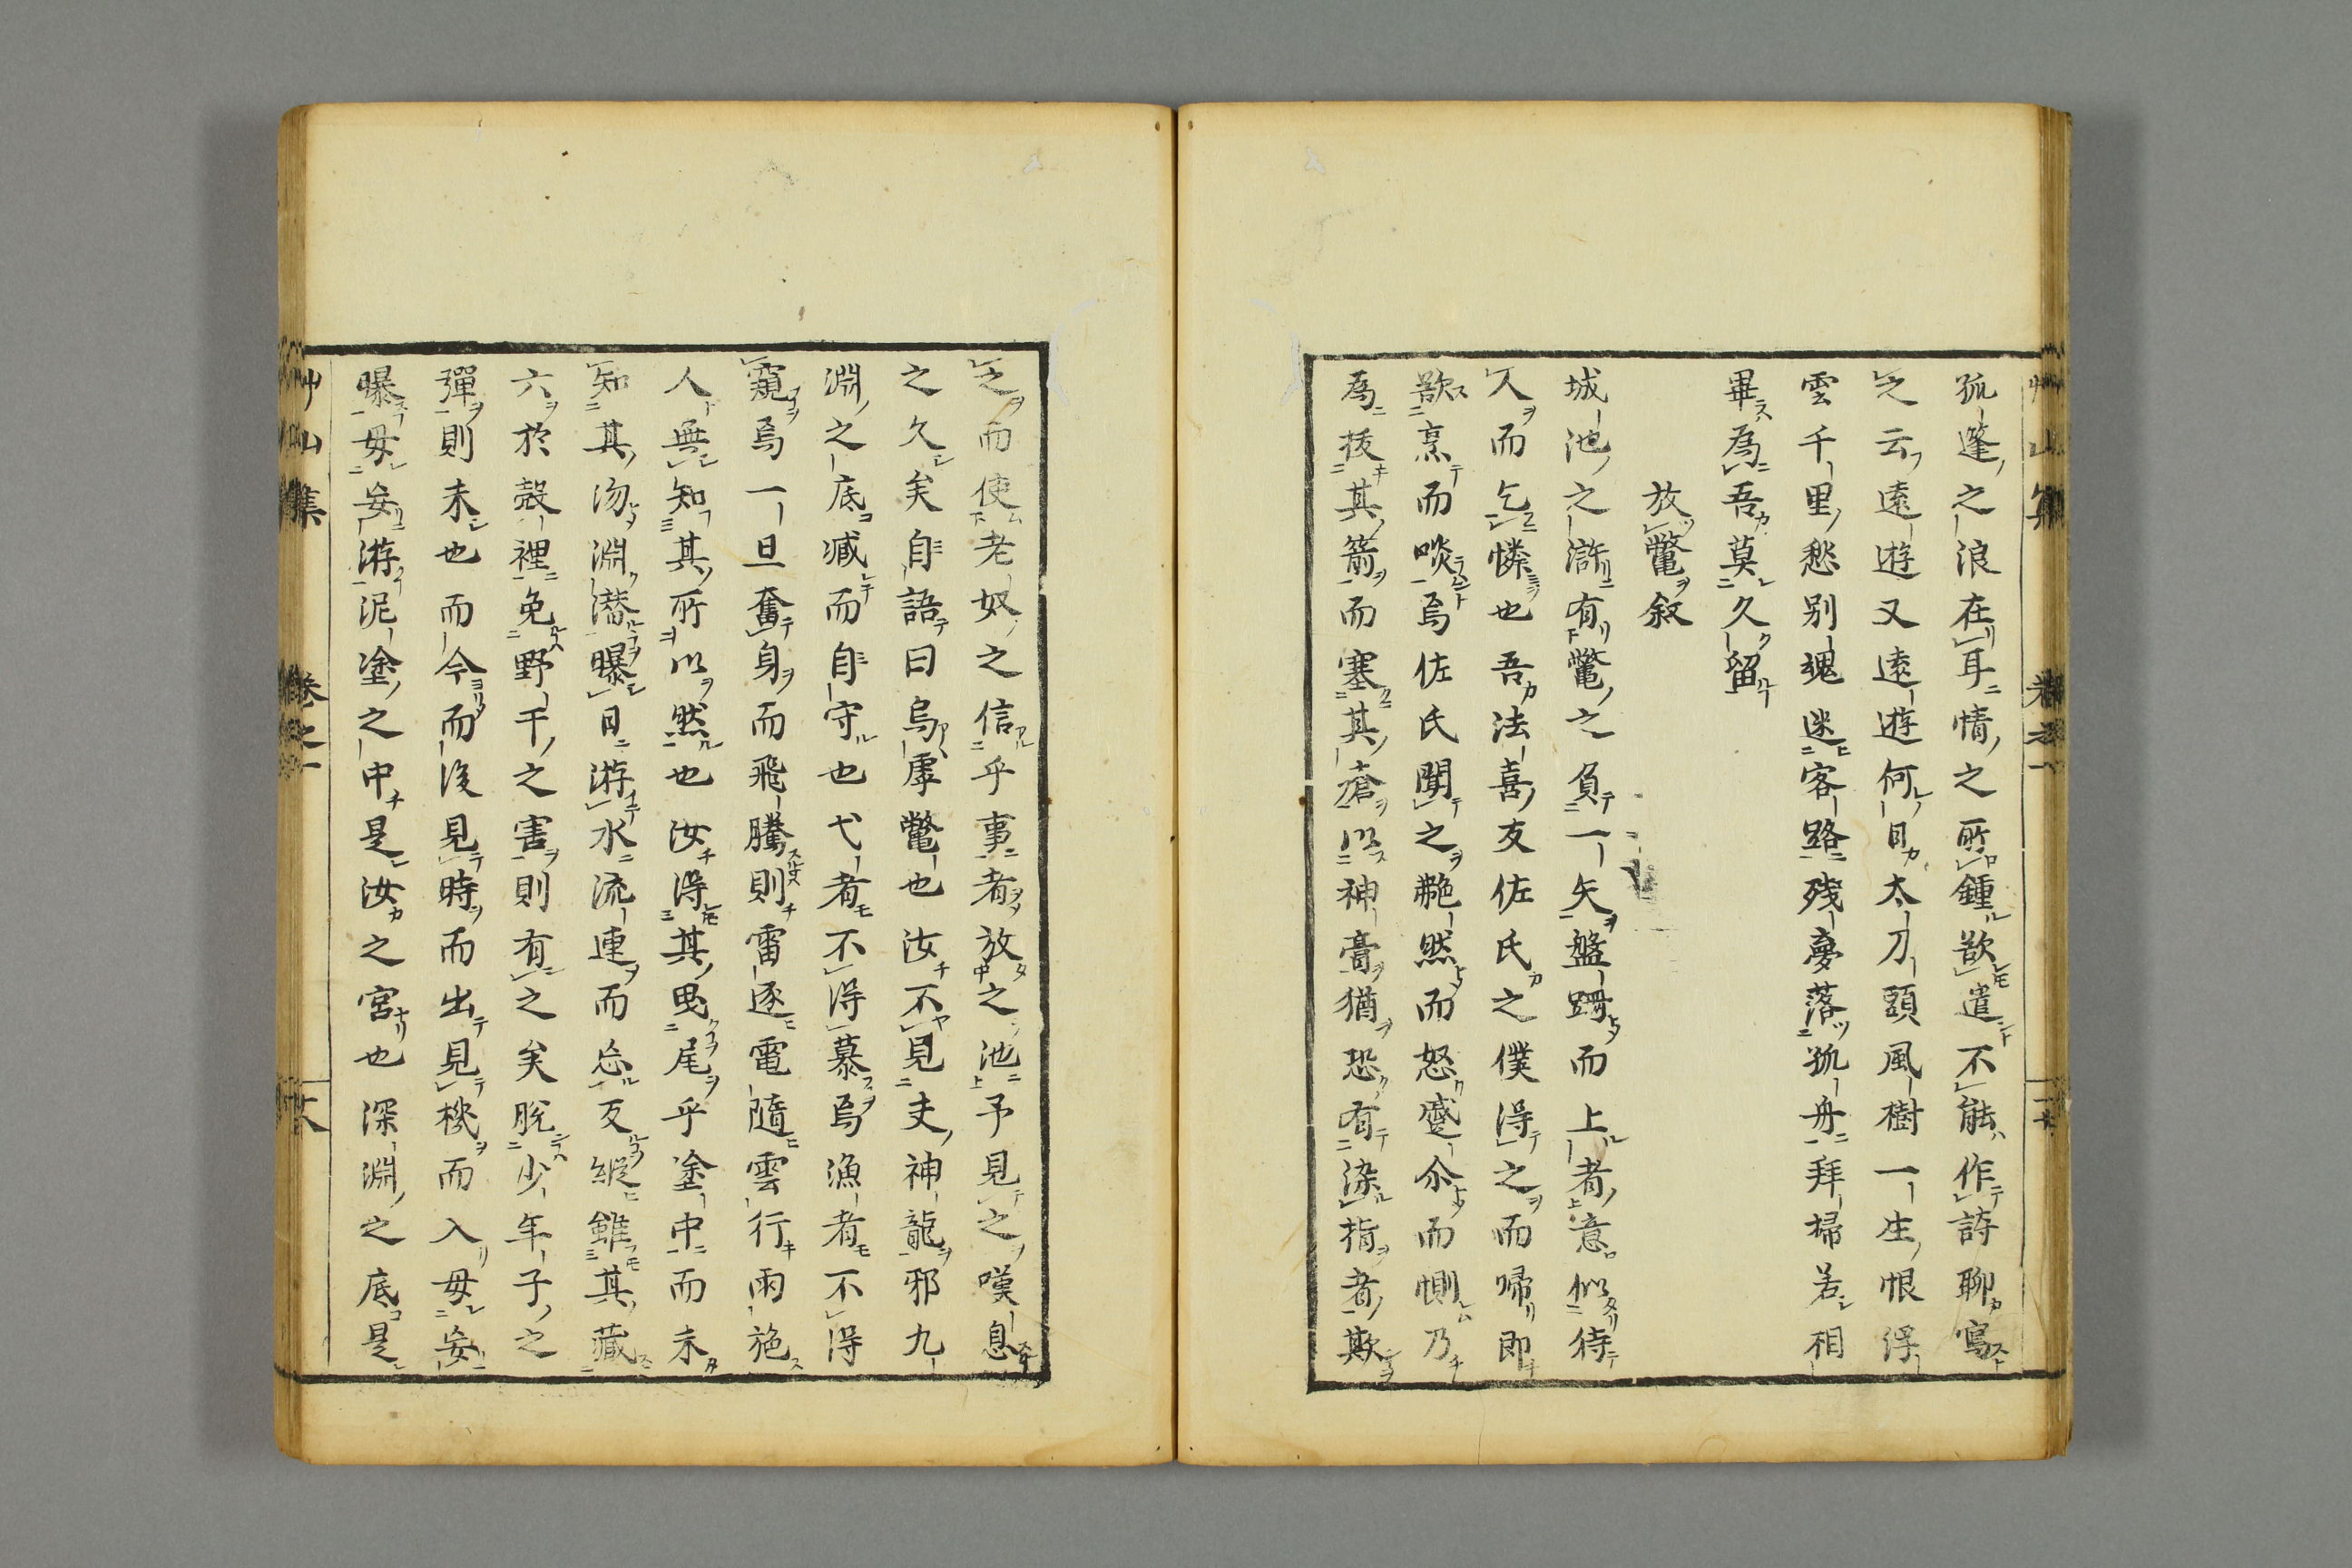 孤蓬之浪在耳情之所鍾歆遣不能作詩聊寫
之云遠遊又遠遊何日太刀頭風樹一生恨浮
雲千里愁別魂迷客路殘夢落孤舟拜掃若相
畢為吾莫久留
放鼈叙
城池之滸有鼈之負一矢盤跚而上者意似待
人而乞憐也吾法喜友佐氏之僕得之而帰即
歆烹而啖焉佐氏聞之艴然而怒蹙尒而惻乃
為抜其箭而塞其瘡以神膏猶恐有染指者欺
之而使老奴之信乎事者放之池予見之嘆息
之久矣自語曰烏虖鼈也汝不見夫神龍邪九
淵之底滅而自守也弋者不得慕焉漁者不得
窺焉一旦奮身而飛騰則雷逐電隨雲行雨施
人無知其所以然也汝得其曳尾乎塗中而未
知其沕淵潜曝日游水流連而忘反縱雖其藏
六於殼裡免野干之害則有之矣脫少年子之
彈則未也而今而後見時而出見機而入毋妄
曝毋妄游泥塗之中是汝之宮也深淵之底是
艸山集 卷之一